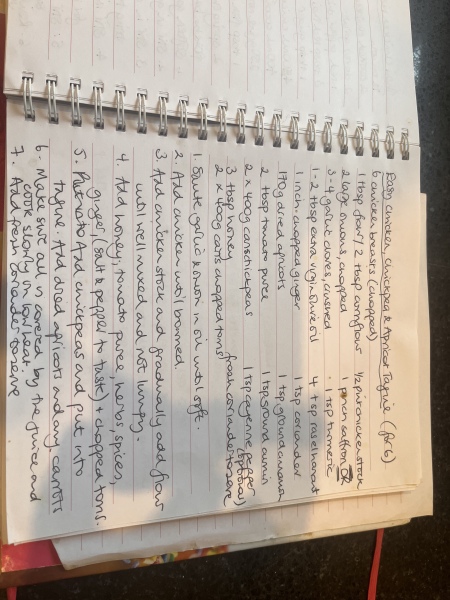 Easy chicken, chickpea & Apricot Tagine (for 6)
6 chicken breasts (chopped)
1 tbsp flour / 2 tbsp cornflour 1/2 pint chicken stock
2 large onions, chopped 1 pinch saffron OR
3-4 garlic cloves, crushed 1 tsp turmeric
1-2 tbsp extra virgin olive oil 4 tsp ras el hanout
1 inch chopped ginger 1 tsp coriander
170g dried apricots 1 tsp ground
2 tbsp tomato puree 1 tsp ground cumin
2 x 400g cans chickpeas 1 tsp cayenne pepper (optional)
3 tbsp honey fresh coriander to serve
2 x 400g cans chopped toms
1. Saute garlic & onion in oil until soft.
2. Add chicken until browned.
3. Add chicken stock and gradually add flour
until well mixed and not lumpy.
4. Add honey, tomato puree, herbs, spices,
ginger, (salt & pepper to taste) + chopped toms.
5. Add chickpeas and put into
tagine. Add dried apricots and any carrots
6. Make sure all is covered by the juice and
cook slowly on low heat.
7. Add fresh coriander to serve